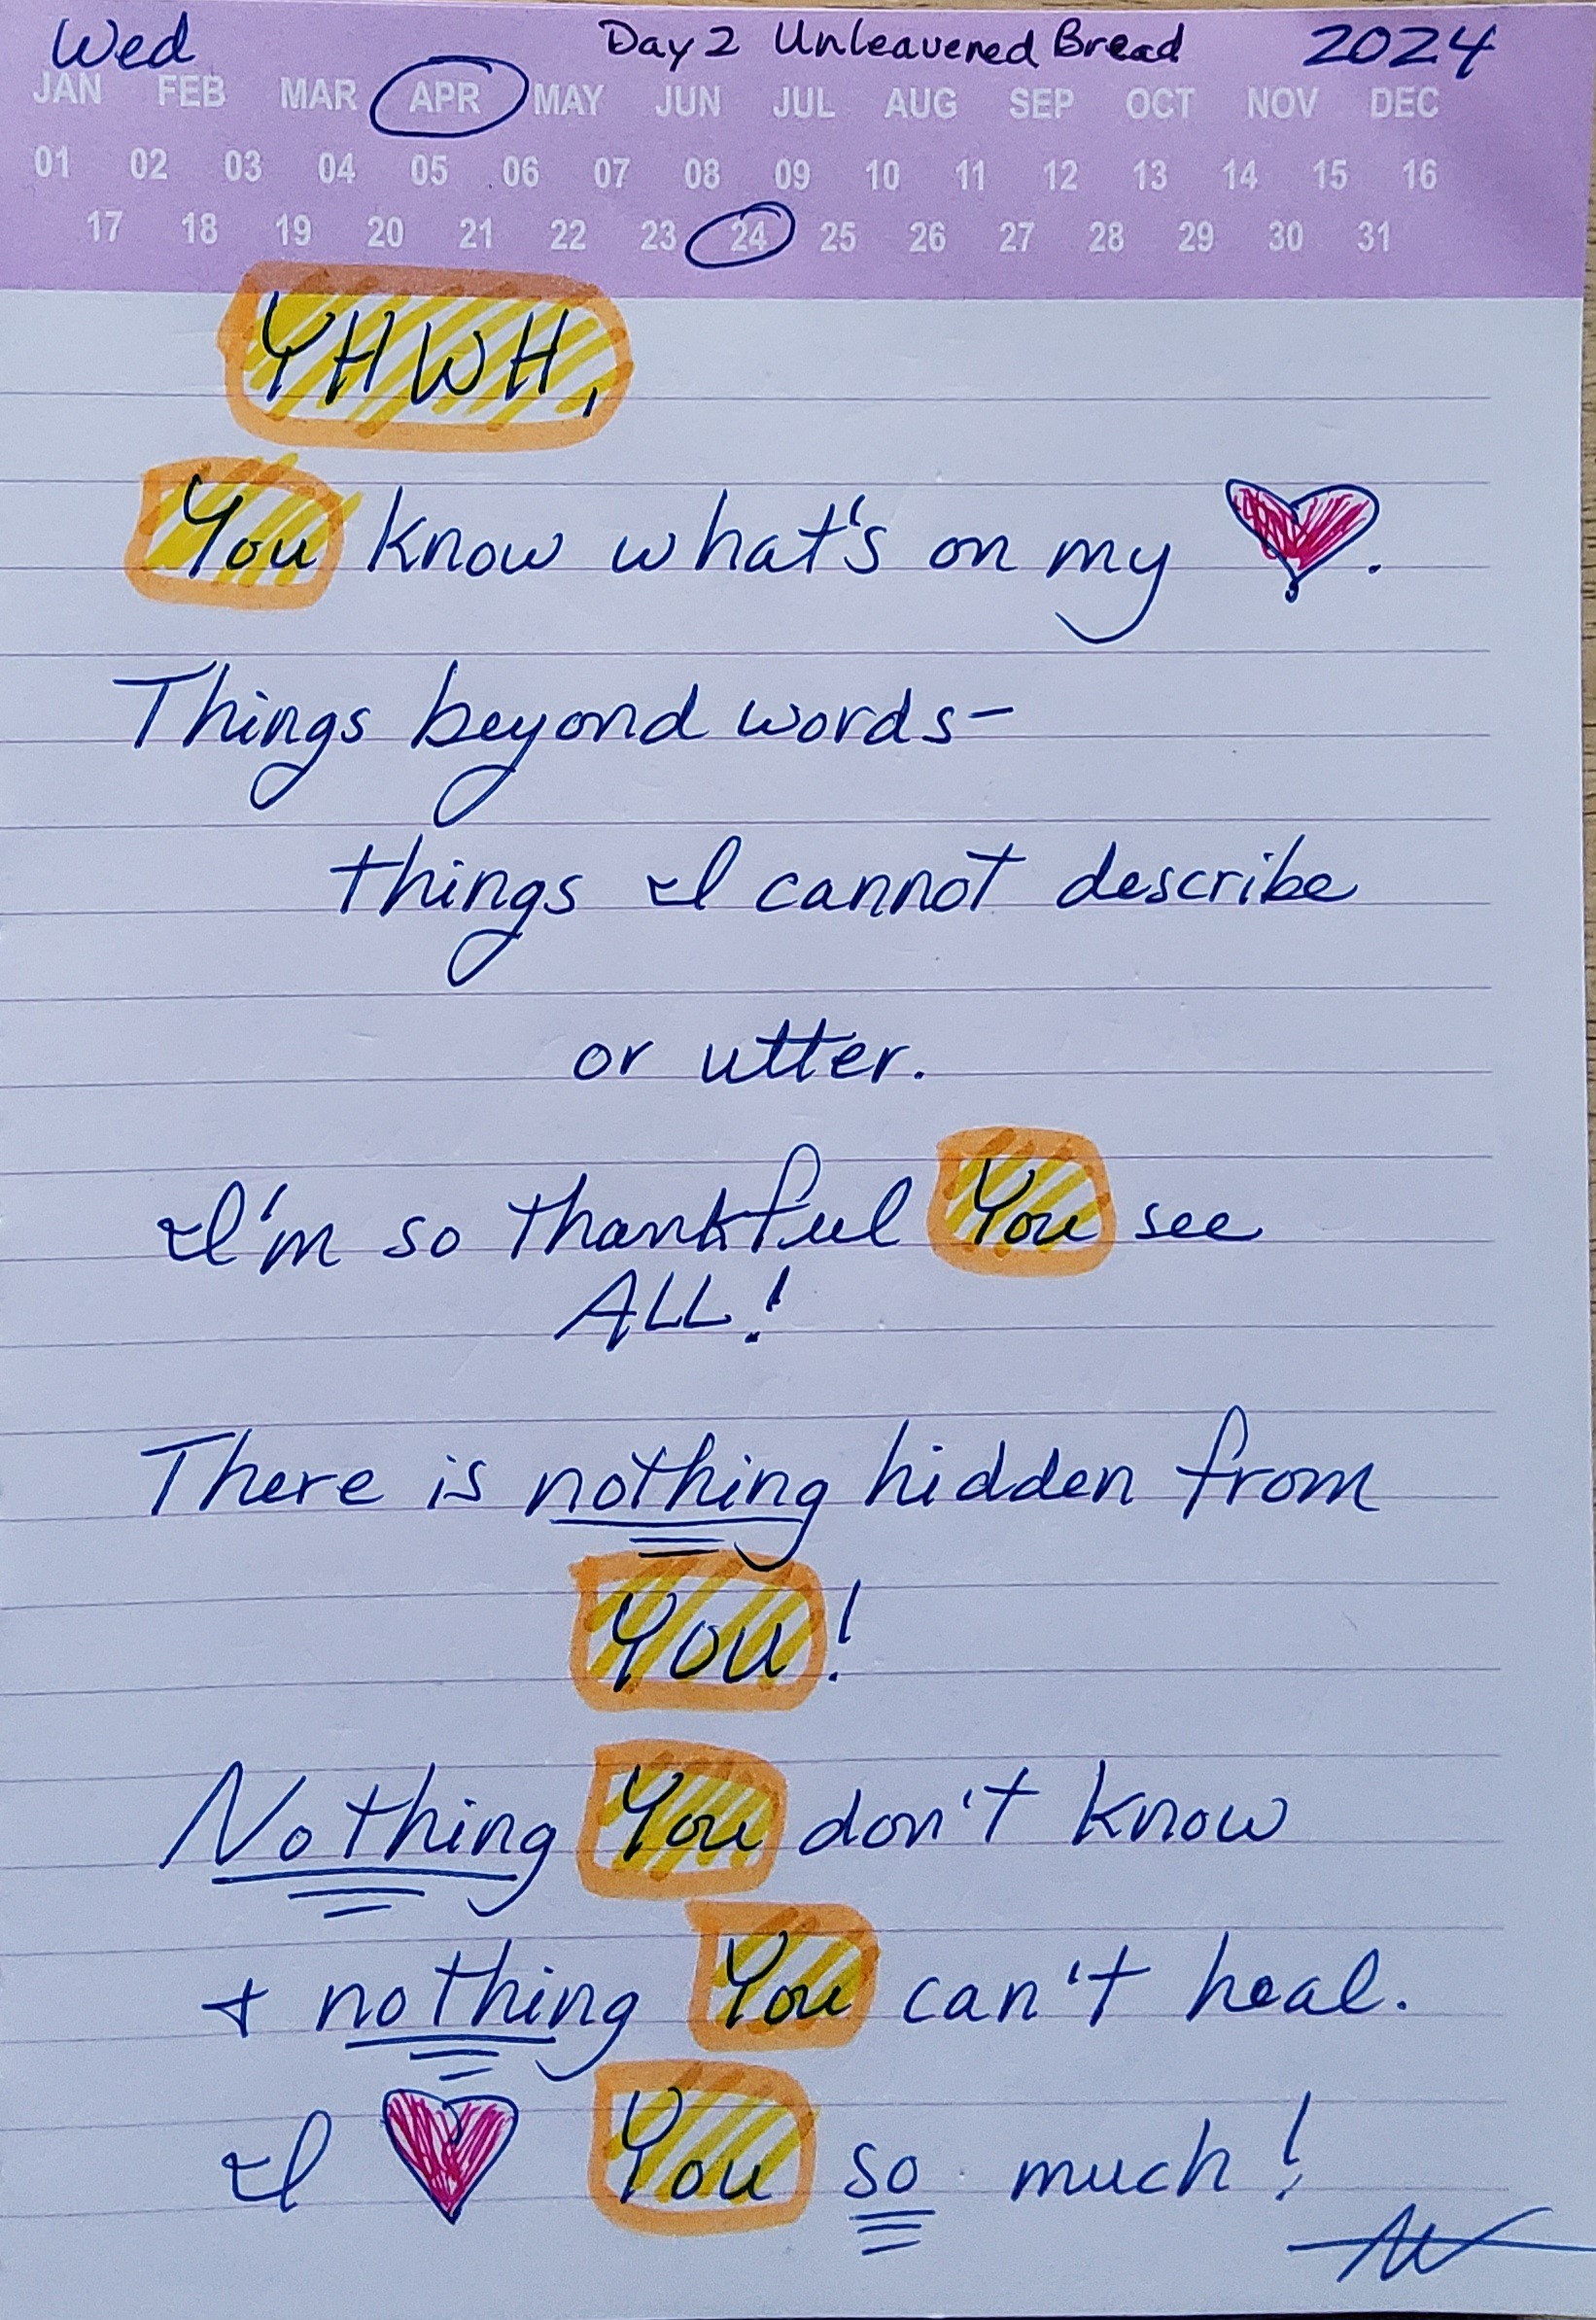 Wed Day 2 Unleavened Bread 2024
JAN FEB MAR APR MAY JUN JUL AUG SEP OCT NOV DEC
01 02 03 04 05 06 07 08 09 10 11 12 13 14 15 16
17 18 19 20 21 22 23 24 25 26 27 28 29 30 31
YHWH,
You know what's on my ♥.
Things beyond words-
things I cannot describe
or utter.
I'm so thankful You see
ALL!
There is nothing hidden from
You!
Nothing You don't know
+ nothing You can't heal.
I ♥ You so much!